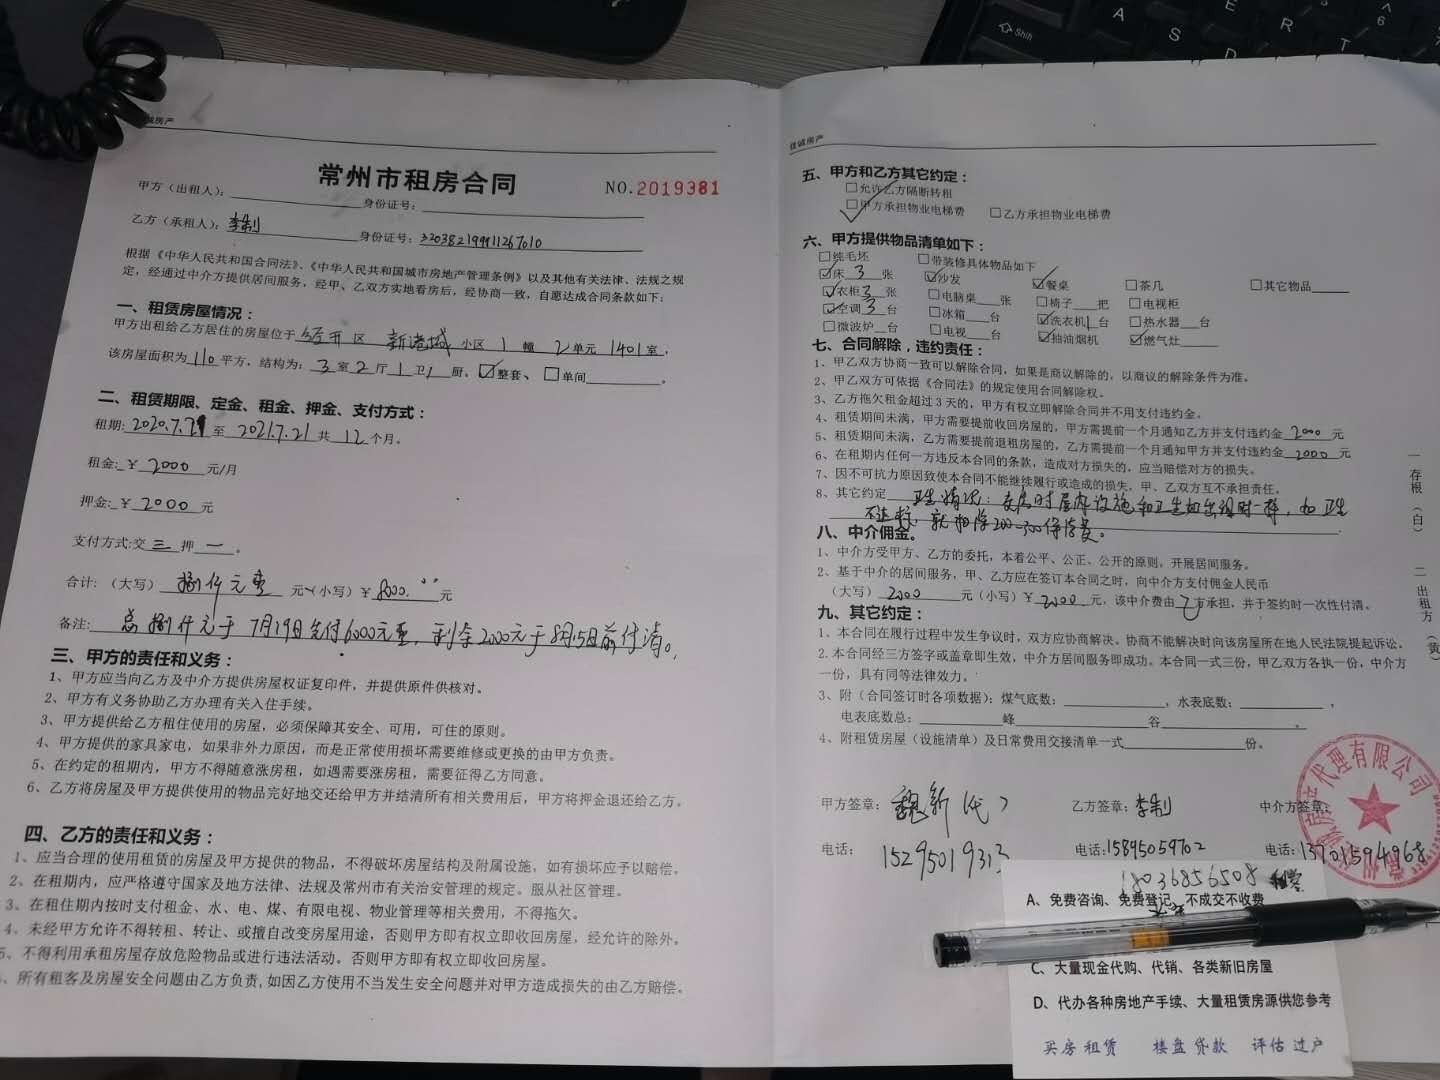 房产
常州市租房合同 NO.2019381
甲方（出租人）：身份证号：
乙方（承租人）：李制 身份证号：320382199911267010
根据《中华人民共和国合同法》、《中华人民共和国城市房地产管理条例》以及其他有关法律、法规之规
定，经通过中介方提供居间服务，经甲、乙双方实地看房后，经协商一致，自愿达成合同条款如下：
一、租赁房屋情况：
甲方出租给乙方居住的房屋位于 经开 区 新港城 小区 1 幢 2 单元 1401 室，
该房屋面积为 110 平方，结构为：3 室 2 厅 1 卫 1 厨，☑整套、□单间。
二、租赁期限、定金、租金、押金、支付方式：
租期：2020.7.21 至 2021.7.21 共 12 个月。
租金：￥2000 元/月
押金：￥2000 元
支付方式：交 三 押 一。
合计：（大写）捌仟元整 元（小写）￥8000.00 元
备注：总捌仟元于7月19日先付6000元整，剩余2000元于8月15日前付清。
三、甲方的责任和义务：
1、甲方应当向乙方及中介方提供房屋权证复印件，并提供原件供核对。
2、甲方有义务协助乙方办理有关入住手续。
3、甲方提供给乙方租住使用的房屋，必须保障其安全、可用，可住的原则。
4、甲方提供的家具家电，如果非外力原因，而是正常使用损坏需要维修或更换的由甲方负责。
5、在约定的租期内，甲方不得随意涨房租，如遇需要涨房租，需要征得乙方同意。
6、乙方将房屋及甲方提供使用的物品完好地交还给甲方并结清所有相关费用后，甲方将押金退还给乙方。
四、乙方的责任和义务：
1、应当合理的使用租赁的房屋及甲方提供的物品，不得破坏房屋结构及附属设施，如有损坏应予以赔偿。
2、在租期内，应严格遵守国家及地方法律、法规及常州市有关治安管理的规定。服从社区管理。
3、在租住期内按时支付租金、水、电、煤、有限电视、物业管理等相关费用，不得拖欠。
4、未经甲方允许不得转租、转让、或擅自改变房屋用途，否则甲方即有权立即收回房屋，经允许的除外。
5、不得利用承租房屋存放危险物品或进行违法活动。否则甲方即有权立即收回房屋。
、所有租客及房屋安全问题由乙方负责，如因乙方使用不当发生安全问题并对甲方造成损失的由乙方赔偿。
佳诚房产
五、甲方和乙方其它约定：
□允许乙方隔断转租
☑甲方承担物业电梯费 □乙方承担物业电梯费
六、甲方提供物品清单如下：
□纯毛坯 □带装修具体物品如下
☑床 3 张 ☑沙发 ☑餐桌 □茶几 □其它物品
☑衣柜 3 张 □电脑桌 张 □椅子 把 □电视柜
☑空调 3 台 □冰箱 台 ☑洗衣机 1 台 □热水器 台
□微波炉 台 □电视 台 ☑抽油烟机 ☑燃气灶
七、合同解除，违约责任：
1、甲乙双方协商一致可以解除合同，如果是商议解除的，以商议的解除条件为准。
2、甲乙双方可依据《合同法》的规定使用合同解除权。
3、乙方拖欠租金超过3天的，甲方有权立即解除合同并不用支付违约金。
4、租赁期间未满，甲方需要提前收回房屋的，甲方需提前一个月通知乙方并支付违约金 2000 元
5、租赁期间未满，乙方需要提前退租房屋的，乙方需提前一个月通知甲方并支付违约金 2000 元
6、在租期内任何一方违反本合同的条款，造成对方损失的，应当赔偿对方的损失。
7、因不可抗力原因致使本合同不能继续履行或造成的损失，甲、乙双方互不承担责任。
8、其它约定 卫生情况：交房时屋内设施和卫生如出租时一样，如卫生
不达标，就扣除200-300保洁费。
八、中介佣金。
1、中介方受甲方、乙方的委托，本着公平、公正、公开的原则，开展居间服务。
2、基于中介的居间服务，甲、乙方应在签订本合同之时，向中介方支付佣金人民币
（大写）2000 元（小写）￥2000 元，该中介费由 乙 方承担，并于签约时一次性付清。
九、其它约定：
1、本合同在履行过程中发生争议时，双方应协商解决。协商不能解决时向该房屋所在地人民法院提起诉讼。
2.本合同经三方签字或盖章即生效，中介方居间服务即成功。本合同一式三份，甲乙双方各执一份，中介方
一份，具有同等法律效力。
3、附（合同签订时各项数据）：煤气底数：，水表底数：，
电表底数总：峰 谷。
4、附租赁房屋（设施清单）及日常费用交接清单一式 份。
甲方签章：魏新（代） 乙方签章：李制 中介方签章：
电话：15295019313 电话：15895059702 电话：13701594968
18036856508
房产代理有限公司
常州
一存根（白） 二出租方（黄）
A、免费咨询、免费登记、不成交不收费
C、大量现金代购、代销、各类新旧房屋
D、代办各种房地产手续、大量租赁房源供您参考
买房 租赁 楼盘 贷款 评估 过户
Shift
A
S
D
E
R
T
6